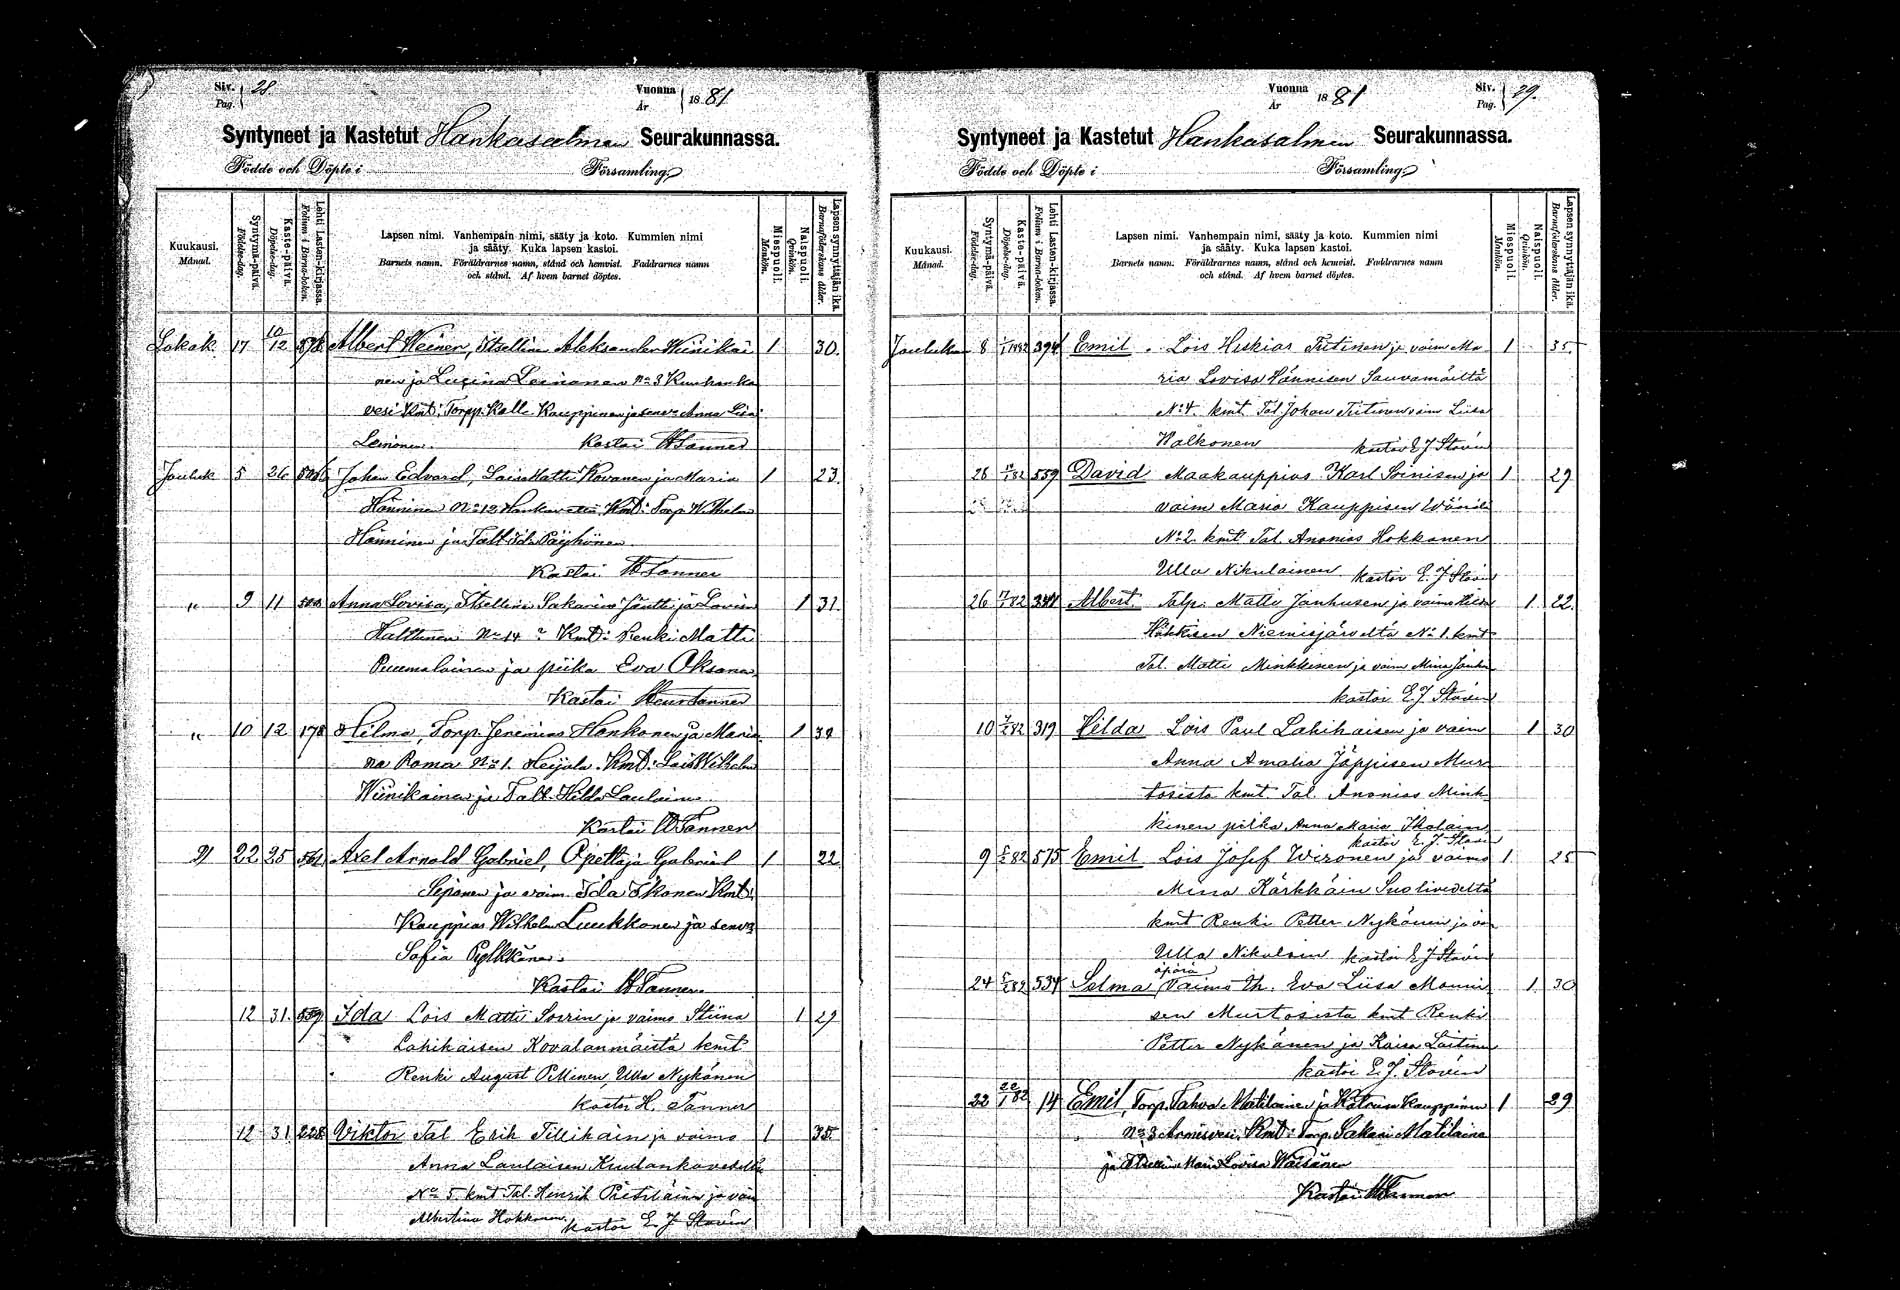 Siv. Pag. 28.
Vuonna År 1881
Syntyneet ja Kastetut Hankasalmen Seurakunnassa.
Födde och Döpte i Församling.
Kuukausi. Månad.
Syntymä-päivä. Födelse-dag.
Kaste-päivä. Döpelse-dag.
Lehti Lasten-kirjassa. Folium i Barna-boken.
Lapsen nimi. Vanhempain nimi, sääty ja koto. Kummien nimi
ja sääty. Kuka lapsen kastoi.
Barnets namn. Föräldrarnes namn, stånd och hemvist. Faddrarnes namn
och stånd. Af hvem barnet döptes.
Miespuoli. Mankön.
Naispuoli. Qvinkön.
Lapsen synnyttäjän ikä. Barnaföderskans ålder.
Lokak. 17 10/12 578 Albert Weiner, Itsellinen Aleksander Wiinikai 1 30.
nen ja Lusina Leinonen No 3 Kuuhanka
vesi Kmt: Torpp. Kalle Kauppinen ja Anna Lisa
Leinonen. Kastoi HTanner
Jouluk 5 26 Johan Edvard, Lois Matti Kovanen ja Maria 1 23.
Hänninen No 12 Kmt: Torp. Wilhelm
Hänninen ja Talt. Ida Pöyhönen
Kastoi HTanner
" 9 11 Anna Lovisa, Itsellinen Sakarias Jäntti ja Lovisa 1 31.
Halttunen No 14 Kmt: Renki Matti
Puumalainen ja piika Eva Oksanen
Kastoi Tanner
" 10 12 178 Hilma, Torp. Jeremias Honkonen ja Maria 1
na Roma No 1. Kmt: Lois Wilhelm
Wiinikainen ja Talt. Hilda Laulainen
Kastoi HTanner
" 22 25 561 Axel Arnold Gabriel, Opettaja Gabriel 1 22
Seponen ja vaim. Ida Ikonen Kmt:
Kauppias Wilhelm Luukkonen ja
Sofia Pylkkänen.
Kastoi HTanner.
12 31. 559 Ida Lois Matti Sorrin ja vaimo Stiina 1 29
Lahikaisen Kovalanmäistä kmt
Renki August Pellinen, Ulla Nykänen
kastoi H. Tanner
12 31 228 Viktor Tal Erik Tillikain ja vaimo 1 35.
Anna Laulaisen Kuuhankavedeltä
No 5 kmt Tal. Hinrik ja vaim
Albertina Hokkonen kastoi E. J. Stovén
Vuonna År 1881
Siv. Pag. 29.
Syntyneet ja Kastetut Hankasalmen Seurakunnassa.
Födde och Döpte i Församling.
Kuukausi. Månad.
Syntymä-päivä. Födelse-dag.
Kaste-päivä. Döpelse-dag.
Lehti Lasten-kirjassa. Folium i Barna-boken.
Lapsen nimi. Vanhempain nimi, sääty ja koto. Kummien nimi
ja sääty. Kuka lapsen kastoi.
Barnets namn. Föräldrarnes namn, stånd och hemvist. Faddrarnes namn
och stånd. Af hvem barnet döptes.
Miespuoli. Mankön.
Naispuoli. Qvinkön.
Lapsen synnyttäjän ikä. Barnaföderskans ålder.
Jouluku 8 1/1 1882 394 Emil. Lois Heskias Tiitinen ja vaim Ma 1 35.
ria Lovisa Hännisen Sauvamäiltä
No 4. kmt. Tal Johan Tiitinen vaim Liisa
Walkonen kastoi E J Stovén
28 559 David Maakauppias Karl Soinisen ja 1 29
vaim Maria Kauppisen
No 2 kmt Tal. Ananias Hokkanen
Ulla Nikulainen kastoi E. J Stovén
26 341 Albert. Talp. Matti Janhusen ja vaimo Hilda 1 22.
Häkkisen Niemisjärveltä No 1. kmt
Tal. Matti Minkkinen ja vaim Mina
kastoi E J Stovén
10 319 Hilda Lois Paul Lahikaisen ja vaim 1 30
Anna Amalia Jäppisen Mur
tosista kmt. Tal. Ananias Mink
kinen piika Anna Maria
kastoi E. J. Stovén
9 575 Emil Lois Josef Wironen ja vaimo 1 25
Mina Kärkkäin Suolivedeltä
kmt Renki Petter Nykänen ja
Ulla Nikulain kastoi E J Stovén
äpärä
24 534 Selma, Vaimo Eva Liisa Monni 1 30
sen Murtosista kmt Renki
Petter Nykänen ja Kaisa Laitinen
kastoi E. J. Stovén
22 22/1 82 14 Emil, Torp. Tahvo Matilainen ja Katrina Kauppinen 1 29
No 3 Armisvesi. Kmt: Torp. Sakari Matilaine
ja Itsellinen Maria Lovisa Waisänen
Kastoi HTanner